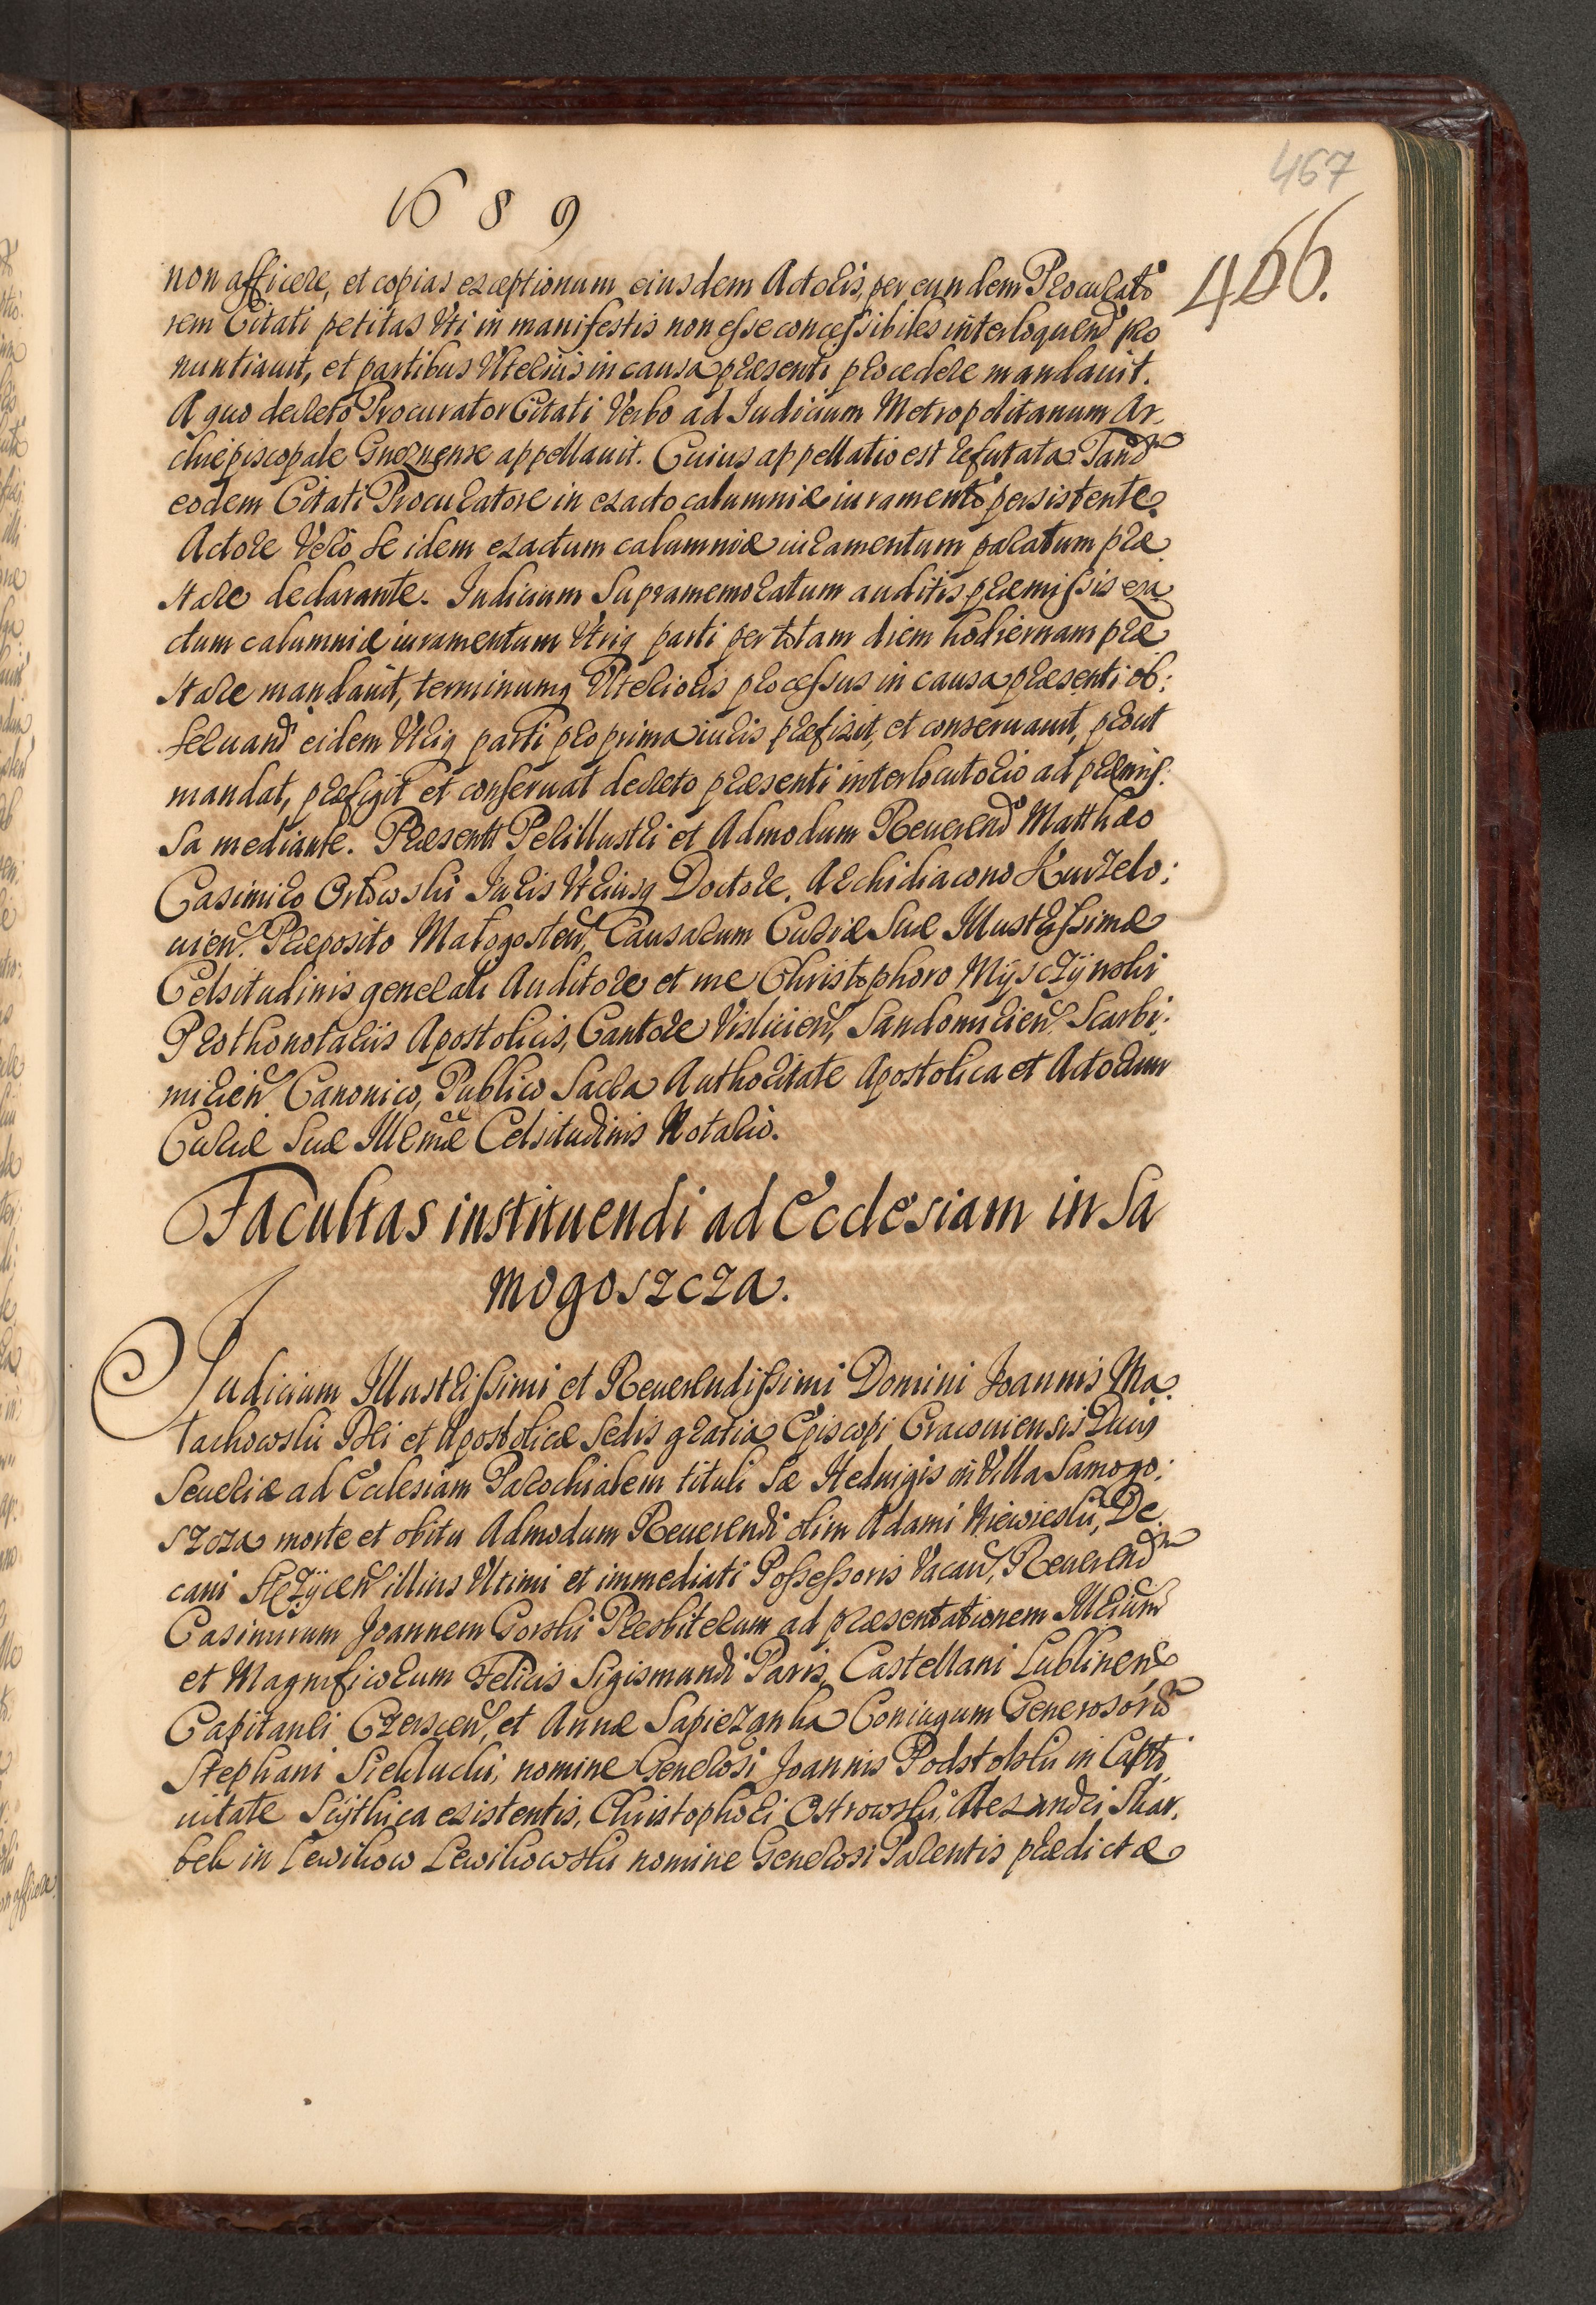 467
1689
466.
non afficere, et copias exceptionum eiusdem Actoris, per eundem Procurato
rem Citati petitas Uti in manifestis non esse concessibiles interloquend pro
nuntiavit, et partibus Ulterius in causa præsenti procedere mandavit.
A quo decreto Procurator Citati Verbo ad Iudicium Metropolitanum Ar,
chiepiscopale Gneznense appellavit. Cuius appellatio est refutata. Tand
eodem Citati Procuratore in exacto calumniæ iuramento persistente,
Actore Vero se idem exactum calumniæ iuramentum paratum præ
stare declarante. Iudicium Supramemoratum auditis præmissis exa
ctum calumniæ iuramentum Utriq parti per totam diem hodiernam præ
stare mandavit, terminumq Ulterioris processus in causa præsenti ob:
servand eidem Utriq parti pro prima iuris præfixit, et conservavit, prout
mandat, præfigit et conservat decreto præsenti interlocutorio ad præmis:
sa mediante. Præsentt Perillustri et Admodum Reverend Matthæo
Casimiro Orłowski Iuris Utriusq Doctore, Archidiacono Kurzelo:
vien Præposito Małogosten, Causarum Curiæ Suæ Illustrissimæ
Celsitudinis generali Auditore et me Christophoro Mÿsczÿnski
Prothonotariis Apostolicis, Cantore Vislicien, Sandomirien Scarbi:
mirien Canonico, Publico Sacra Authoritate Apostolica et Actorum
Curiæ Suæ Illmæ Celsitudinis Notario.
Facultas instituendi ad Ecclesiam in Sa
mogoszcza.
Judicium Illustrissimi et Reverendissimi Domini Joannis Ma,
łachowski Dei et Apostolicæ Sedis gratia Episcopi Cracoviensis Ducis
Severiæ ad Ecclesiam Parochialem tituli Sæ Hedvigis in Villa Samogo:
szcza morte et obitu Admodum Reverendi olim Adami Niewieski, De,
cani Stęzÿcen illius Ultimi et immediati Possessoris Vacan, Reverend
Casimirum Joannem Gorski Presbiterum ad præsentationem Illrium
et Magnificorum Felicis Sigismundi Paris, Castellani Lublinen
Capitanei Czerscen, et Annæ Sapiezanka Coniugum Generosor
Stephani Siekłucki, nomine Generosi Joannis Podstolski in Capti,
vitate Scÿthica existentis, Christophori Ostrowski, Alexandri Skar,
bek in Lewikow Lewikowski nomine Generosi Parentis prædictæ